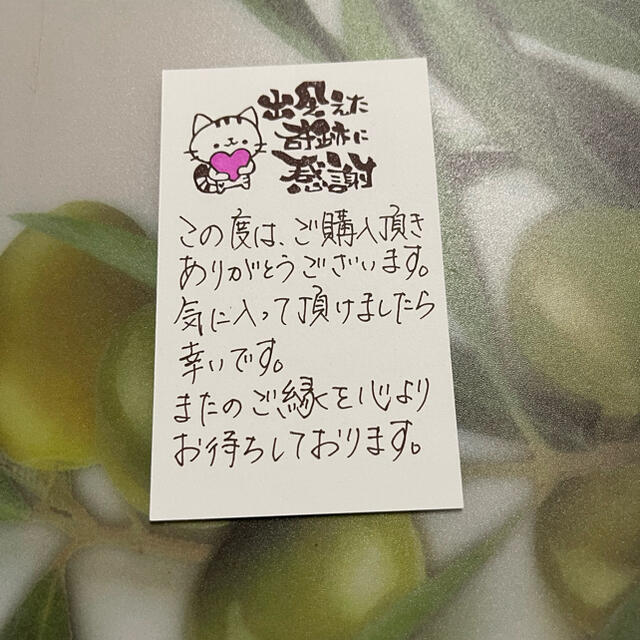 出会えた
奇跡に
感謝
この度は、ご購入頂き
ありがとうございます。
気に入って頂けましたら
幸いです。
またのご縁を心より
お待ちしております。